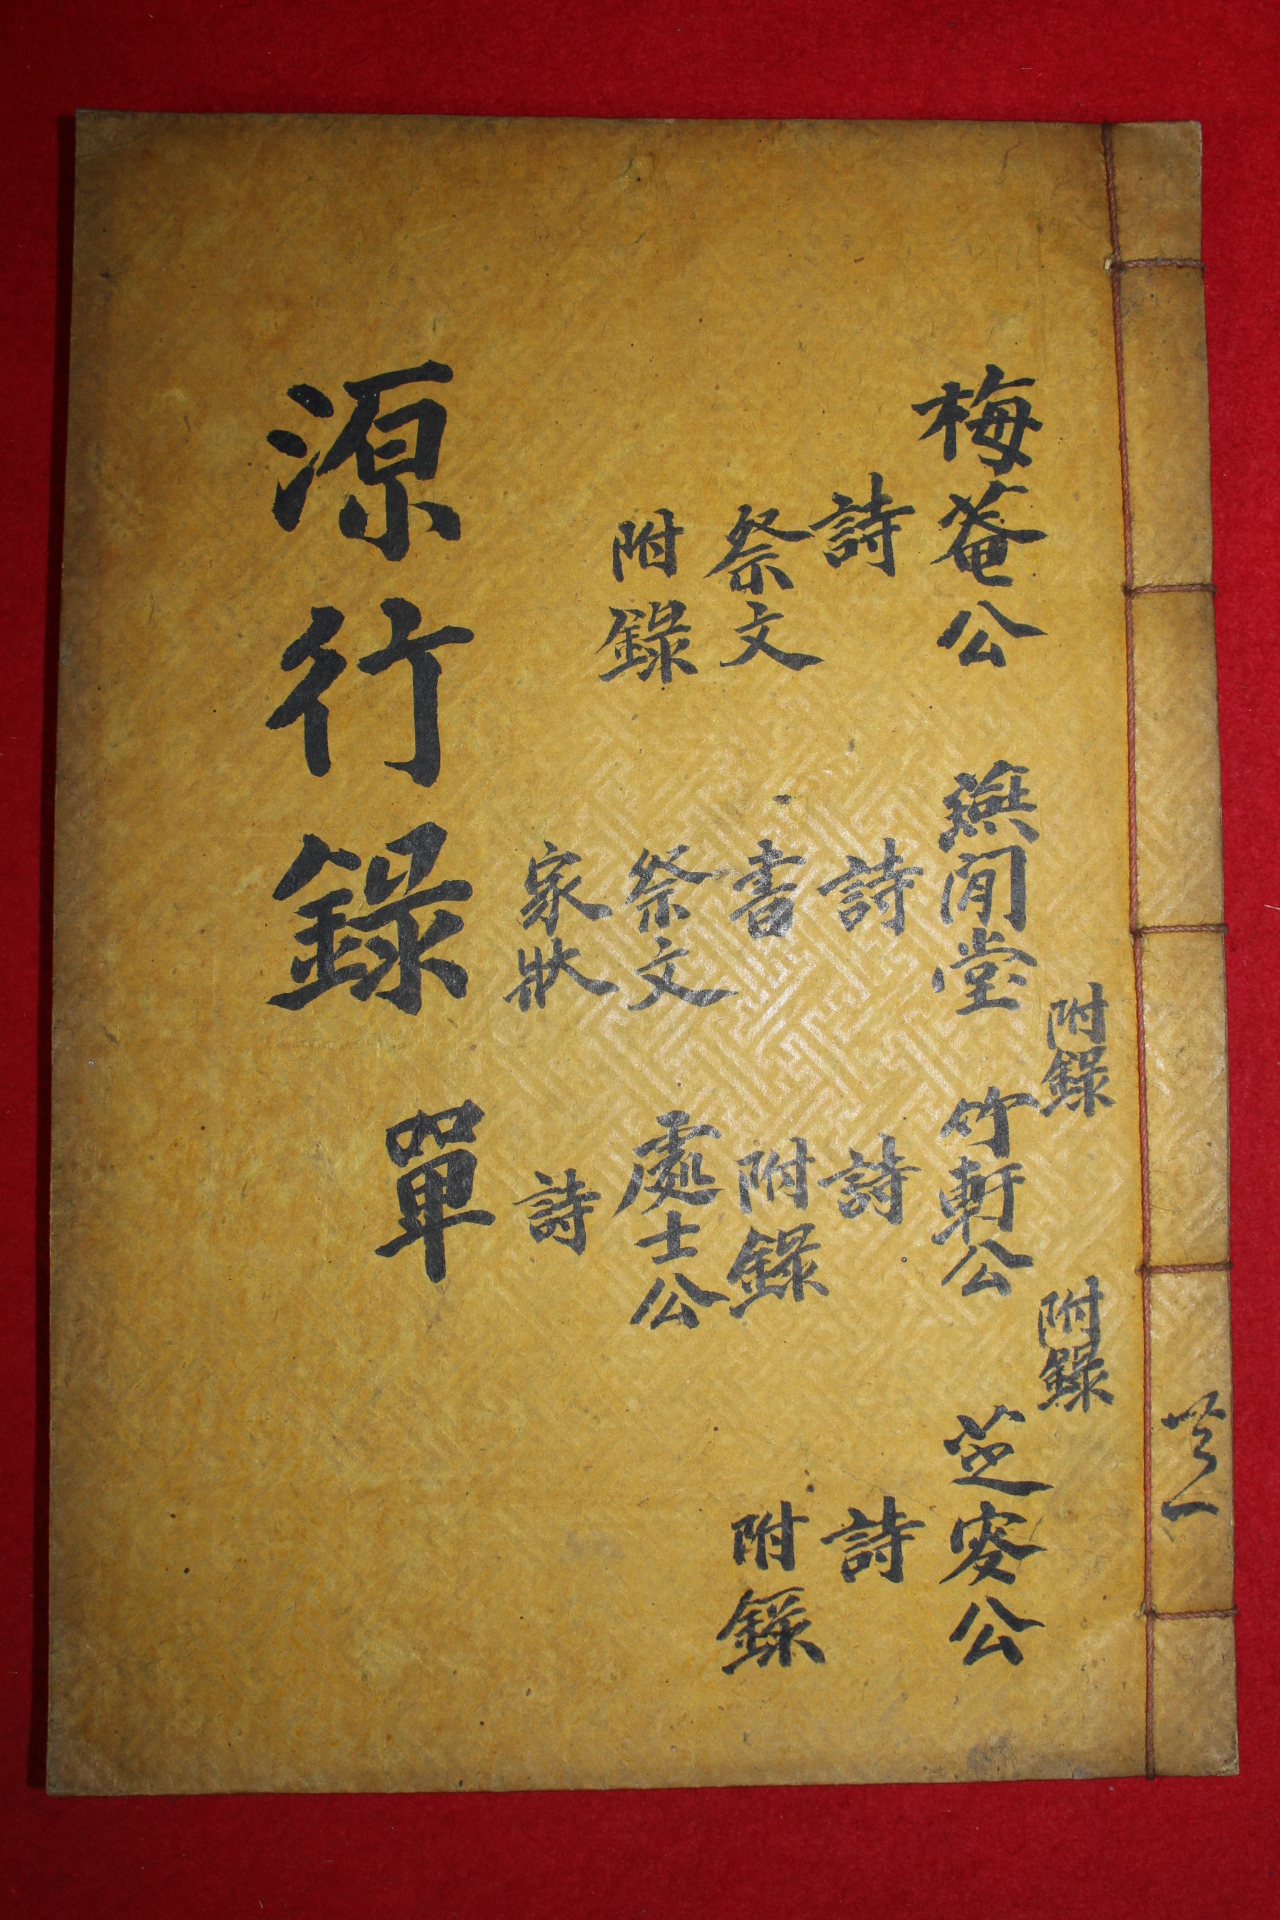 附錄
附錄
梅菴公
無閒堂
竹軒公
芝 公
詩
詩
詩
詩
祭文
書
附錄
附錄
附錄
祭文
處士公
家狀
詩
源行錄 單
共一